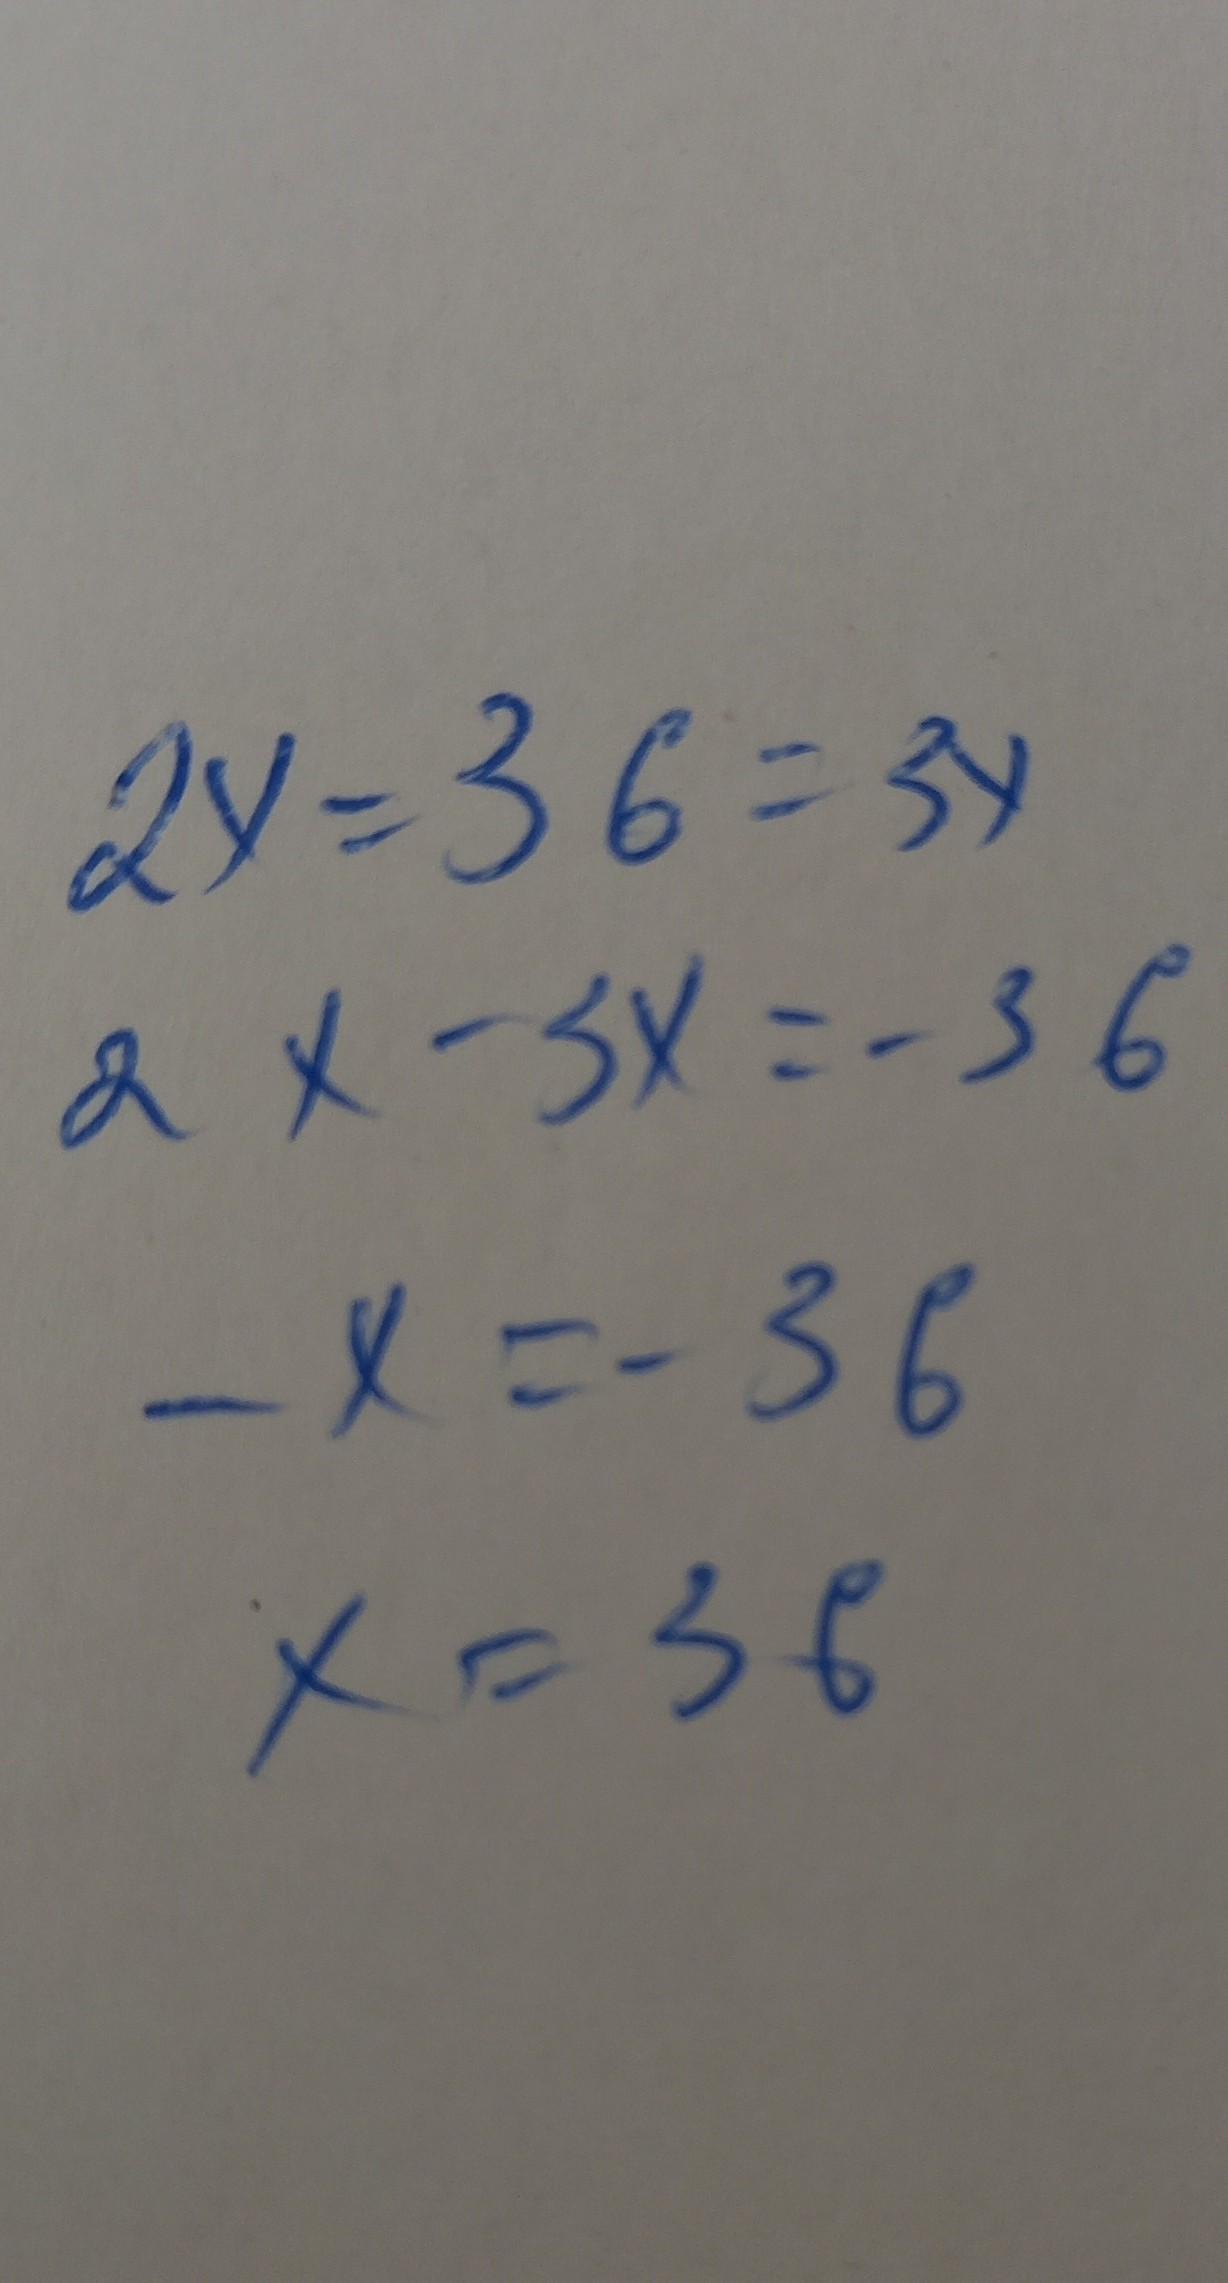 2x = 36 = 3x
2x - 3x = -36
-x = -36
x = 36